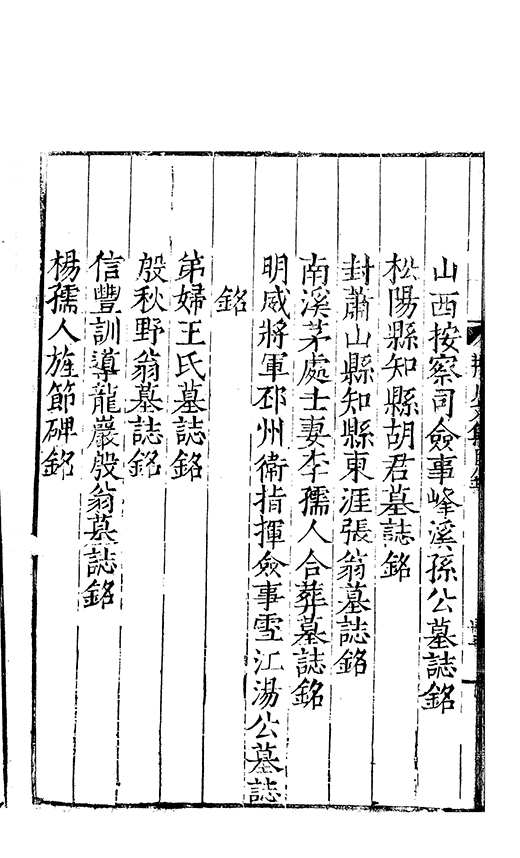 山西按察司僉事峰溪孫公墓誌銘
松陽縣知縣胡君墓誌銘
封蕭山縣知縣東涯張翁墓誌銘
南溪茅處士妻李孺人合葬墓誌銘
明威將軍邳州衛指揮僉事雪江湯公墓誌
銘
弟婦王氏墓誌銘
殷秋野翁墓誌銘
信豐訓導龍巖殷翁墓誌銘
楊孺人旌節碑銘